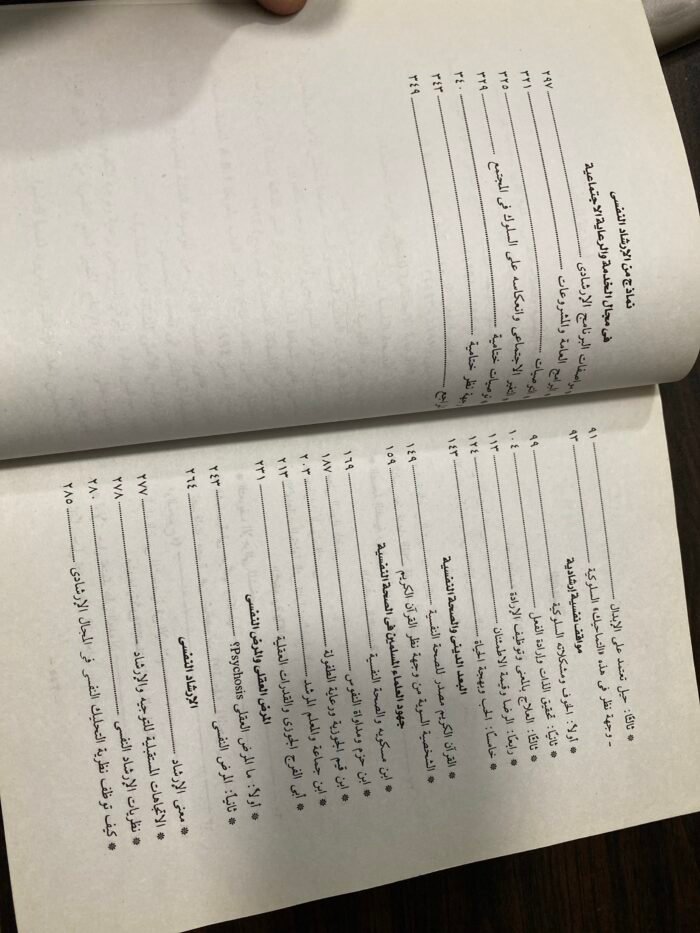 * ثالثًا: حيل تعتمد على الإبدال ........ ٩١
- وجهة نظر فى هذه «التماحيك» السلوكية ........ ٩٣
مواقف نفسية إرشادية
* أولاً: الخوف ومشكلاته السلوكية ........ ٩٩
* ثانيًا: تحقيق الذات وإرادة الفعل ........ ١٠٤
* ثالثًا: العلاج بالمعنى وتوظيف الإرادة ........ ١١٣
* رابعًا: الرضا وقيمة الاطمئنان ........ ١٢٤
* خامسًا: الحب وبهجة الحياة ........ ١٤٣
البعد الدينى والصحة النفسية
* القرآن الكريم مصدر للصحة النفسية ........ ١٤٩
* الشخصية السوية من وجهة نظر القرآن الكريم ........ ١٥٩
جهود العلماء المسلمين فى الصحة النفسية
* ابن مسكويه والصحة النفسية ........ ١٦٩
* ابن حزم ومداواة النفوس ........ ١٨٧
* ابن قيم الجوزية ورعاية الطفولة ........ ٢٠٣
* ابن جماعة والمعلم المرشد ........ ٢١٣
* أبى الفرج الجوزى والقدرات العقلية ........ ٢٣١
المرض العقلى والمرض النفسى
* أولاً: ما المرض العقلى Psychosis؟ ........ ٢٤٣
* ثانيًا: المرض النفسى ........ ٢٦٤
الإرشاد النفسى
* معنى الإرشاد ........ ٢٧٧
* الاتجاهات المستقبلية للتوجيه والإرشاد ........ ٢٧٨
* نظريات الإرشاد النفسى ........ ٢٨٠
* كيف توظف نظرية التحليل النفسى فى المجال الإرشادى ........ ٢٨٥
نماذج من الإرشاد النفسى
فى مجال الخدمة والرعاية الاجتماعية
مواصفات البرنامج الإرشادى ........ ٢٩٧
البرامج العامة والمشروعات ........ ٣٢١
التوصيات ........ ٣٢٥
التغير الاجتماعى وانعكاسه على السلوك فى المجتمع ........ ٣٢٩
توصيات ختامية ........ ٣٤٠
نظر ختامية ........ ٣٤٣
........ ٣٤٩